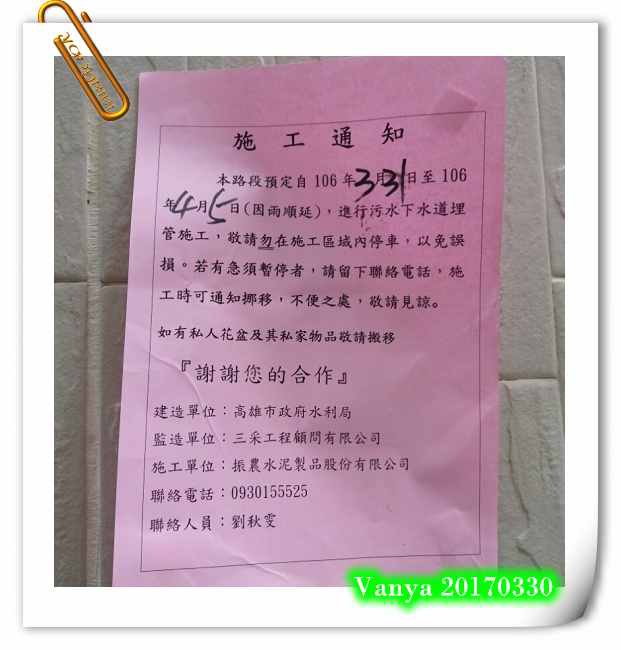 施工通知
本路段預定自 106 年 3 月 31 日至 106
年 4 月 5 日(因雨順延)，進行污水下水道埋
管施工，敬請勿在施工區域內停車，以免誤
損。若有急須暫停者，請留下聯絡電話，施
工時可通知挪移，不便之處，敬請見諒。
如有私人花盆及其私家物品敬請搬移
『謝謝您的合作』
建造單位：高雄市政府水利局
監造單位：三采工程顧問有限公司
施工單位：振農水泥製品股份有限公司
聯絡電話：0930155525
聯絡人員：劉秋雯
Vanya 20170330